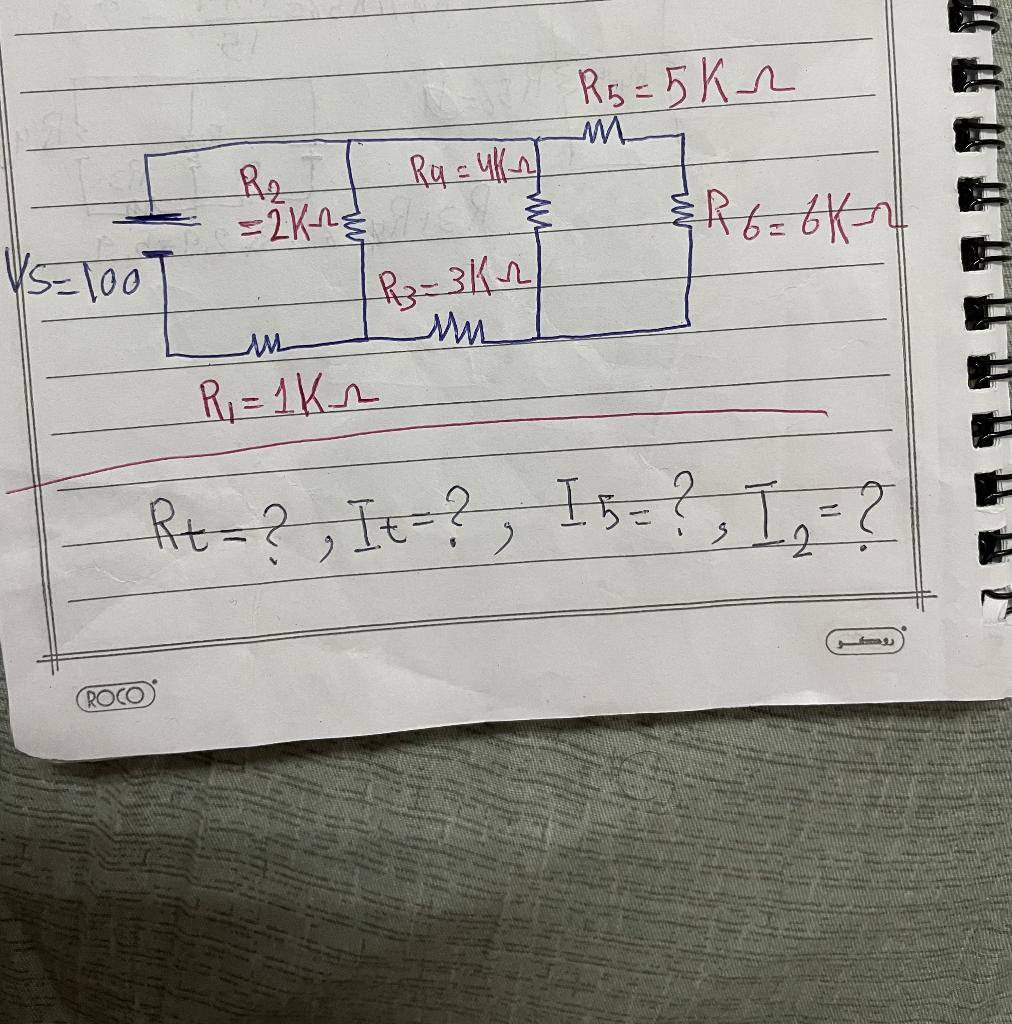 R5 = 5KΩ
R2
= 2KΩ
R4 = 4KΩ
R6 = 6KΩ
VS=100
R3 = 3KΩ
R1 = 1KΩ
Rt = ? , It = ? , I5 = ? , I2 = ?
روكو
ROCO